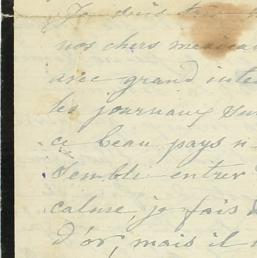 Je suis
nos chers mexicai
avec grand inte
les journaux sur
ce beau pays n
semble entrer
calme, je fais
d'or, mais il